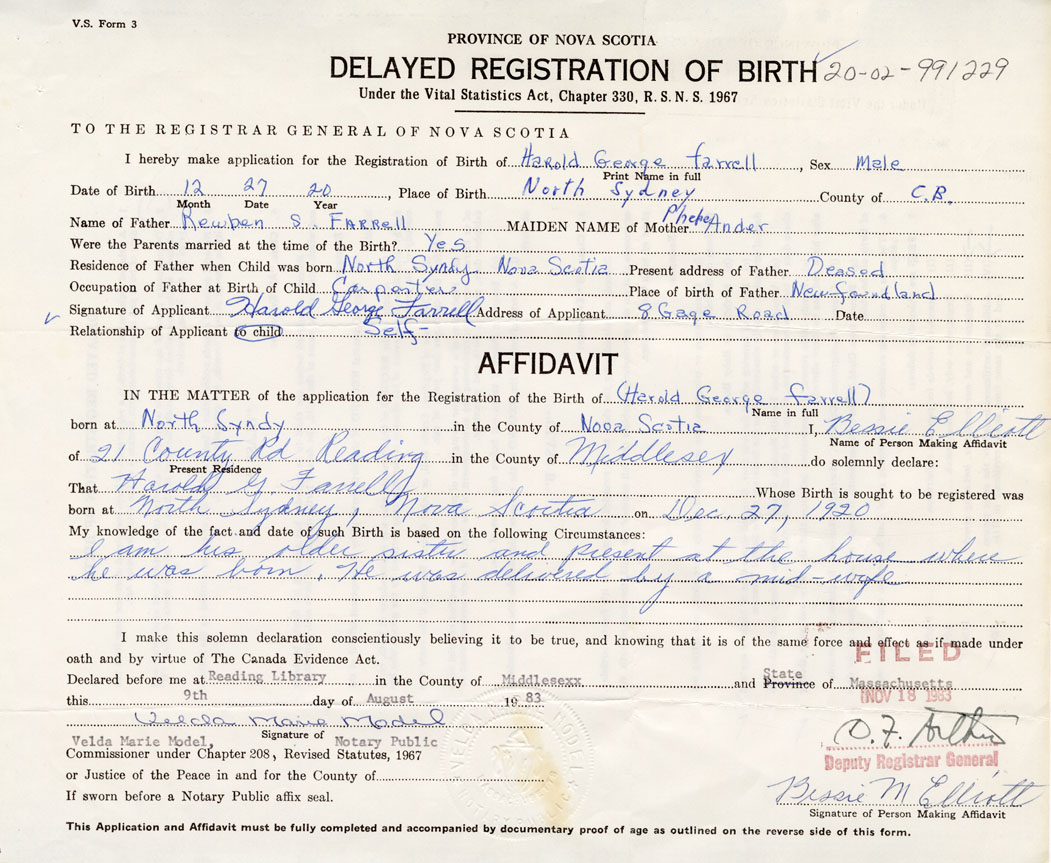 V.S. Form 3
PROVINCE OF NOVA SCOTIA
DELAYED REGISTRATION OF BIRTH 20-02-991229
Under the Vital Statistics Act, Chapter 330, R. S. N. S. 1967
TO THE REGISTRAR GENERAL OF NOVA SCOTIA
I hereby make application for the Registration of Birth of Harold George Farrell, Sex Male
Print Name in full
Date of Birth 12 27 20, Place of Birth North Sydney County of C.B.
Month Date Year
Name of Father Rewben S. FARRELL MAIDEN NAME of Mother Phebe Ander
Were the Parents married at the time of the Birth? Yes
Residence of Father when Child was born North Syndy Nova Scotia Present address of Father Deased
Occupation of Father at Birth of Child Carpenter Place of birth of Father Newfoundland
Signature of Applicant Harold George Farrell Address of Applicant 8 Gage Road Date
Relationship of Applicant to child Self-
AFFIDAVIT
IN THE MATTER of the application for the Registration of the Birth of (Harold George Farrell)
Name in full
born at North Syndy in the County of Nova Scotia I, Bessie Elliott
Name of Person Making Affidavit
of 21 County Rd Reading in the County of Middlesex do solemnly declare:
Present Residence
That Harold G. Farrell Whose Birth is sought to be registered was
born at North Sydney, Nova Scotia on Dec 27, 1920
My knowledge of the fact and date of such Birth is based on the following Circumstances:
I am his older sister and present at the house where
he was born. He was delivered by a mid-wife
I make this solemn declaration conscientiously believing it to be true, and knowing that it is of the same force and effect as if made under
oath and by virtue of The Canada Evidence Act.
FILED
Declared before me at Reading Library in the County of Middlesexx and State Province of Massachusetts
this 9th day of August 19 83
NOV 18 1983
Velda Marie Model
Signature of
Velda Marie Model, Notary Public
D. F. Arthur
Deputy Registrar General
Commissioner under Chapter 208, Revised Statutes, 1967
or Justice of the Peace in and for the County of
If sworn before a Notary Public affix seal.
Bessie M Elliott
Signature of Person Making Affidavit
This Application and Affidavit must be fully completed and accompanied by documentary proof of age as outlined on the reverse side of this form.